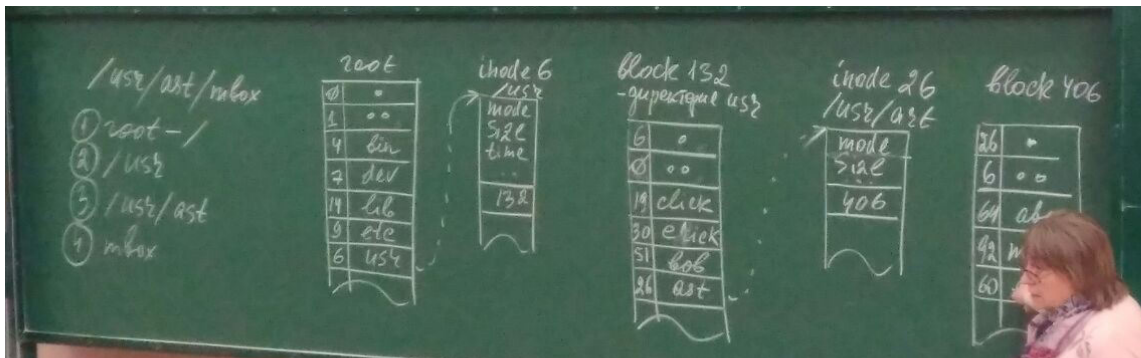 /usr/ast/mbox
① root - /
② /usr
③ /usr/ast
④ mbox
root
0 .
1 ..
4 bin
7 dev
14 lib
9 etc
6 usr
inode 6
/usr
mode
size
time
..
132
block 132
- директория usr
6 .
0 ..
19 click
30 erick
51 bob
26 ast
inode 26
/usr/ast
mode
size
..
406
block 406
26 .
6 ..
64
92
60